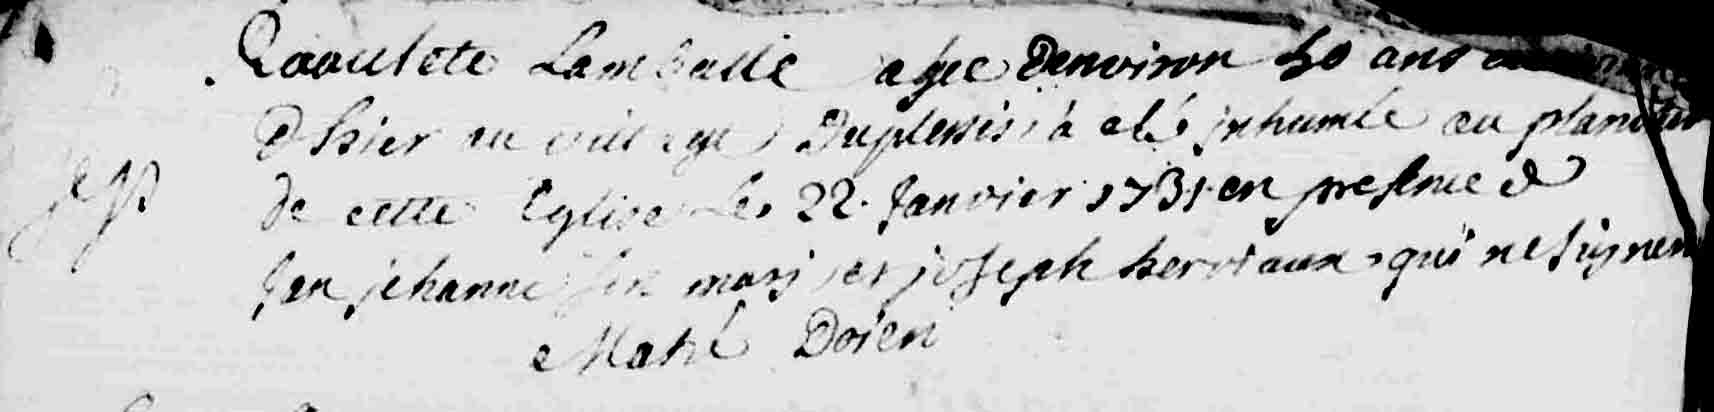 Raoulete Lamballe agee Denviron 50 ans
d'hier au village Duplessis à eté inhumée au placitre
de cette Eglise Le 22. Janvier 1731 en presence de
Jan jehanne son mary et joseph herviaux qui ne signent
Mahé Doien